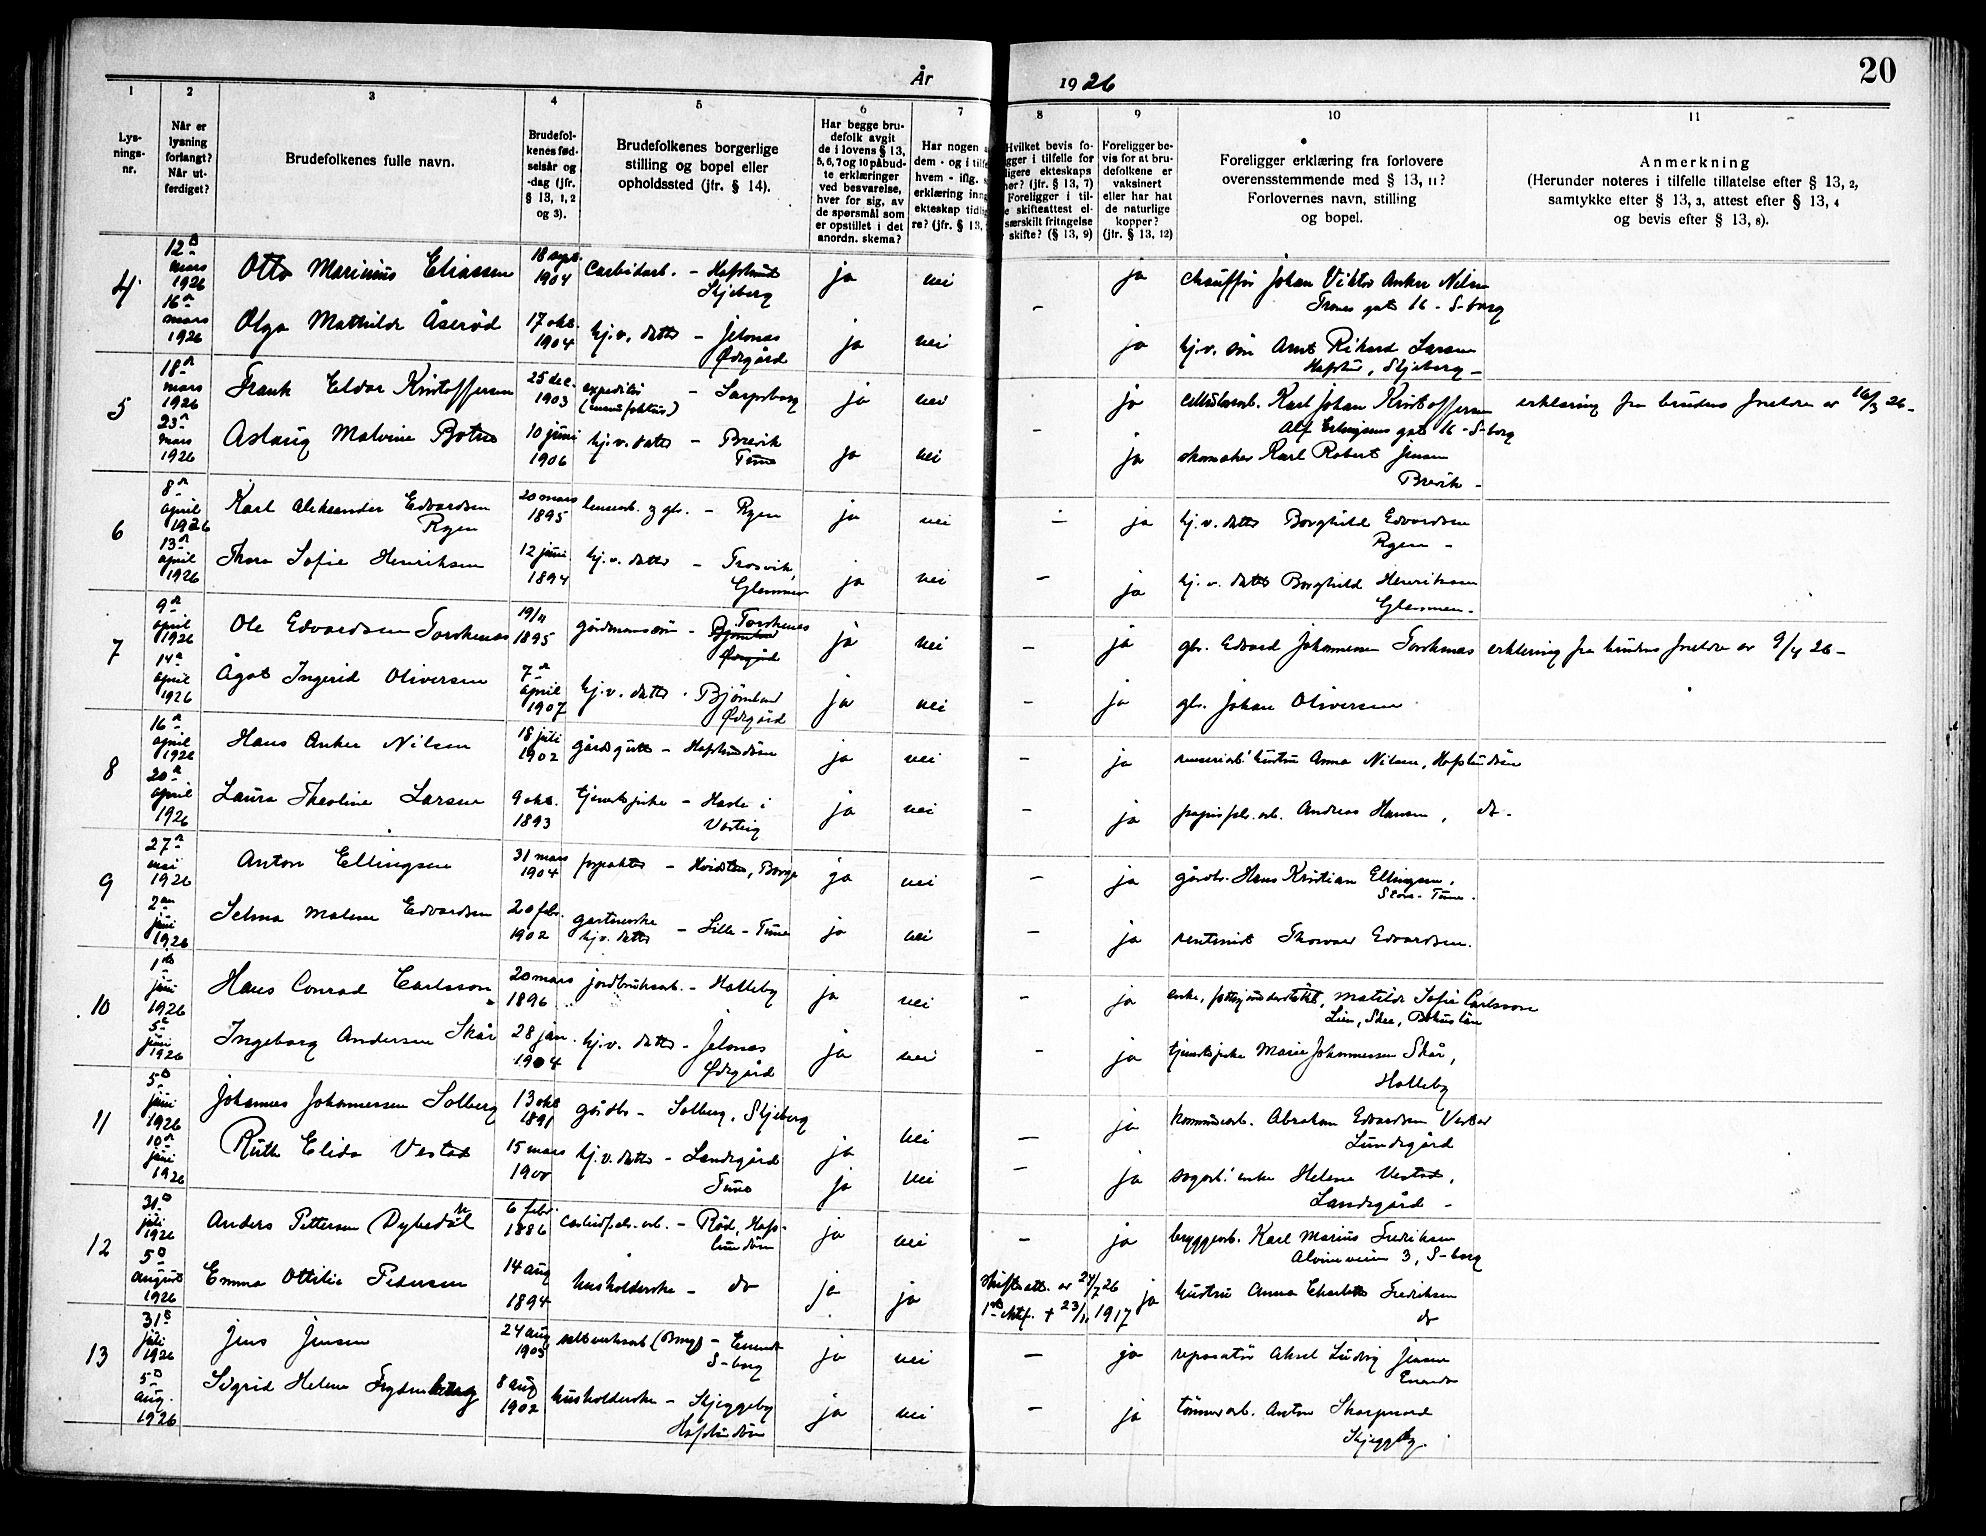 År 1926
20
1
2
3
4
5
6
7
8
9
10
11
Lys-
nings-
nr.
Når er
lysning
forlangt?
Når ut-
ferdiget?
Brudefolkenes fulle navn.
Brudefol-
kenes fød-
selsår og
-dag (jfr.
§ 13, 1, 2
og 3).
Brudefolkenes borgerlige
stilling og bopel eller
opholdssted (jfr. § 14).
Har begge bru-
defolk avgit
de i lovens § 13,
5, 6, 7 og 10 påbud-
te erklæringer
ved besvarelse,
hver for sig, av
de spørsmål som
er opstillet i det
anordn. skema?
Har nogen
dem - og i tilf
hvem - iflg.
erklæring inng
ekteskap tidlig
re? (jfr. § 13,
Hvilket bevis fo-
gger i tilfelle for
ligere ekteskaps
hør? (jfr. § 13, 7)
Foreligger i til-
e skifteattest el-
særskilt fritngelse
skifte? (§ 13, 9)
Foreligger be-
vis for at bru-
defolkene er
vaksinert
eller har hat
de naturlige
kopper?
(jfr. § 13, 12)
Foreligger erklæring fra forlovere
overensstemmende med § 13, 11?
Forlovernes navn, stilling
og bopel.
Anmerkning
(Herunder noteres i tilfelle tillatelse efter § 13, 2,
samtykke efter § 13, 3, attest efter § 13, 4
og bevis efter § 13, 8).
4
12
mars
1926
16
mars
1926
Otto Marinius Eliassen
18 sept.
1904
Carbidarb. - Hafslund
Skjeberg
ja
nei
ja
chauffør Johan Viktor Anker Nilsen
Trones gate 16 - S-borg
Olga Mathilde Åserød
17 okt.
1904
hj.v. datter - Jelsnes
Ødegård
ja
nei
-
ja
hj.v. søn Arnt Rikard Larsen
Hafslund, Skjeberg -
5
18
mars
1926
23
mars
1926
Frank Eldar Kristoffersen
25 des.
1903
expeditør - Sarpsborg
(manufaktur)
ja
nei
ja
Karl Johan Kristoffersen
Alf Erlingsens gate 16 - S-borg
erklæring fra brudens foreldre av 16/3 26 -
Aslaug Malvine Botne
10 juni
1906
hj.v. datter - Brevik
Tune
ja
nei
-
ja
skomaker Karl Robert Jensen
Brevik -
6
8
april
1926
13
april
1926
Karl Aleksander Edvardsen
Rygen
20 mars
1895
- Rygen
ja
nei
-
ja
hj.v. datter Borghild Edvardsen
Rygen -
Thora Sofie Henriksen
12 juni
1894
hj.v. datter - Trosvik,
Glemmen
ja
nei
-
ja
hj.v. datter Borghild Henriksen
Glemmen -
7
9
april
1926
14
april
1926
Ole Edvardsen Torskenes
19/11
1895
gårdmannssøn - Torskenes
Bjørnland
Ødegård
ja
nei
-
ja
gbr. Edvard Johannesen Torskenes
erklæring fra brudens foreldre av 9/4 26 -
Ågot Ingerid Oliversen
7
april
1907
hj.v. datter - Bjørnland
Ødegård
ja
nei
-
ja
gbr. Johan Oliversen
8
16
april
1926
20
april
1926
Hans Anker Nilsen
18 juli
1902
gårdsgutt - Hafslundsøen
ja
nei
-
ja
hustru Anna Nilsen, Hafslundsøen
Laura Theoline Larsen
9 okt.
1893
tjenestepike - Hasle i
Varteig
ja
nei
-
ja
papirfab.arb. Andreas Hansen, do.
9
27
mai
1926
2
juni
1926
Anton Ellingsen
31 mars
1904
forpakter - Hvidsten, Borge
ja
nei
-
ja
gårdbr. Hans Kristian Ellingsen,
Store - Tune.
Selma Malene Edvardsen
20 febr.
1902
hj.v. datter - Lille - Tune
ja
nei
-
ja
rentenist Thorvald Edvardsen.
10
1
juni
1926
5
juni
1926
Hans Conrad Carlsson
20 mars
1896
jordbruksarb. - Hatteby
ja
nei
-
ja
enke, Matilde Sofie Carlsson
Lien, Skee, Bohuslän
Ingeborg Andersen Skår
28 jan.
1904
hj.v. datter - Jelsnes
Ødegård
ja
nei
-
ja
tjenestepike Marie Johannessen Skår,
Hatteby
11
5
juni
1926
10
juni
1926
Johannes Johannessen Solberg
13 okt
1891
gårdbr. - Solberg, Skjeberg
ja
nei
-
ja
kommunearb. Abraham Edvardsen
Lundegård
Ruth Elida Vestad
15 mars
1900
hj.v. datter - Landsgård
Tune
ja
nei
-
ja
enke Helene Vestad,
Landsgård -
12
31
juli
1926
5
august
1926
Anders Pettersen Dybedal
6 febr.
1886
carbidfab.arb. - Rød, Hafs-
lundsøen
ja
nei
-
ja
bryggearb. Karl Marius Fredriksen
Alvimveien 3, S-borg
Emma Ottilie Pedersen
14 aug
1894
husholderske - do
ja
ja
skifteatt. av 24/7 26
1ste ektef. + 23/11 1917
ja
hustru Anna Charlotte Fredriksen
do
13
31
juli
1926
5
aug.
1926
Jens Jensen
24 aug
1903
(Borg) -
S-borg
ja
nei
-
ja
reparatør Aksel Ludvig Jensen
Sigrid Helene Frydenberg
8 aug
1902
husholderske - Skjeggeby
Hafslundsøen
ja
nei
-
ja
tømmerarb. Anton Skarpnord
Skjeggeby.